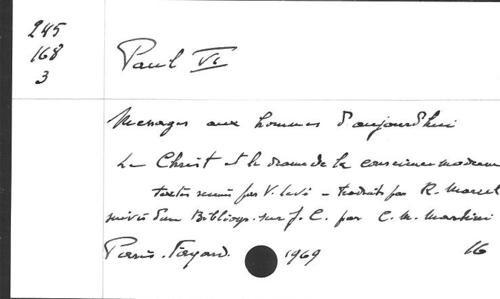 245
168
3
Paul VI
Messages aux hommes d'aujourd'hui
Le Christ et le drame de la conscience moderne
textes réunis par V. Levi - traduits par R. Marcel
suivis d'un Bibliogr. sur J. C. par C. M. Martini
Paris. Fayard. 1969 16